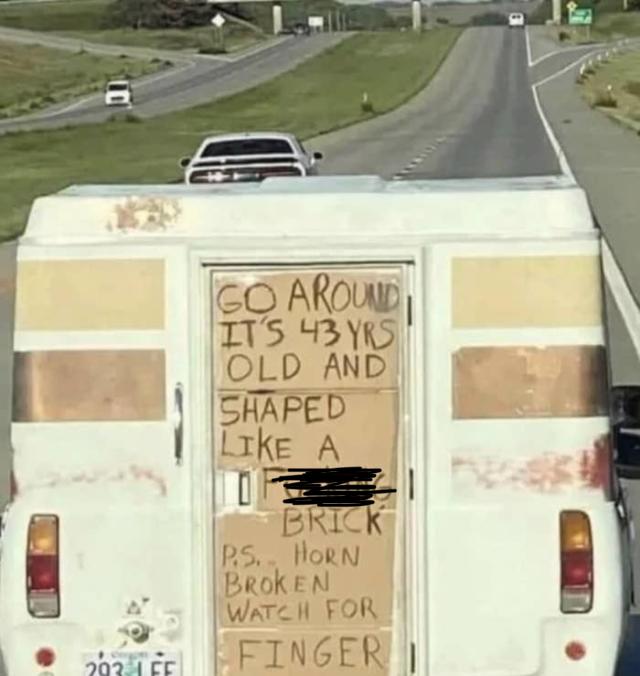 GO AROUND
IT'S 43 YRS
OLD AND
SHAPED
LIKE A
BRICK
P.S.. HORN
BROKEN
WATCH FOR
FINGER
293 LFF